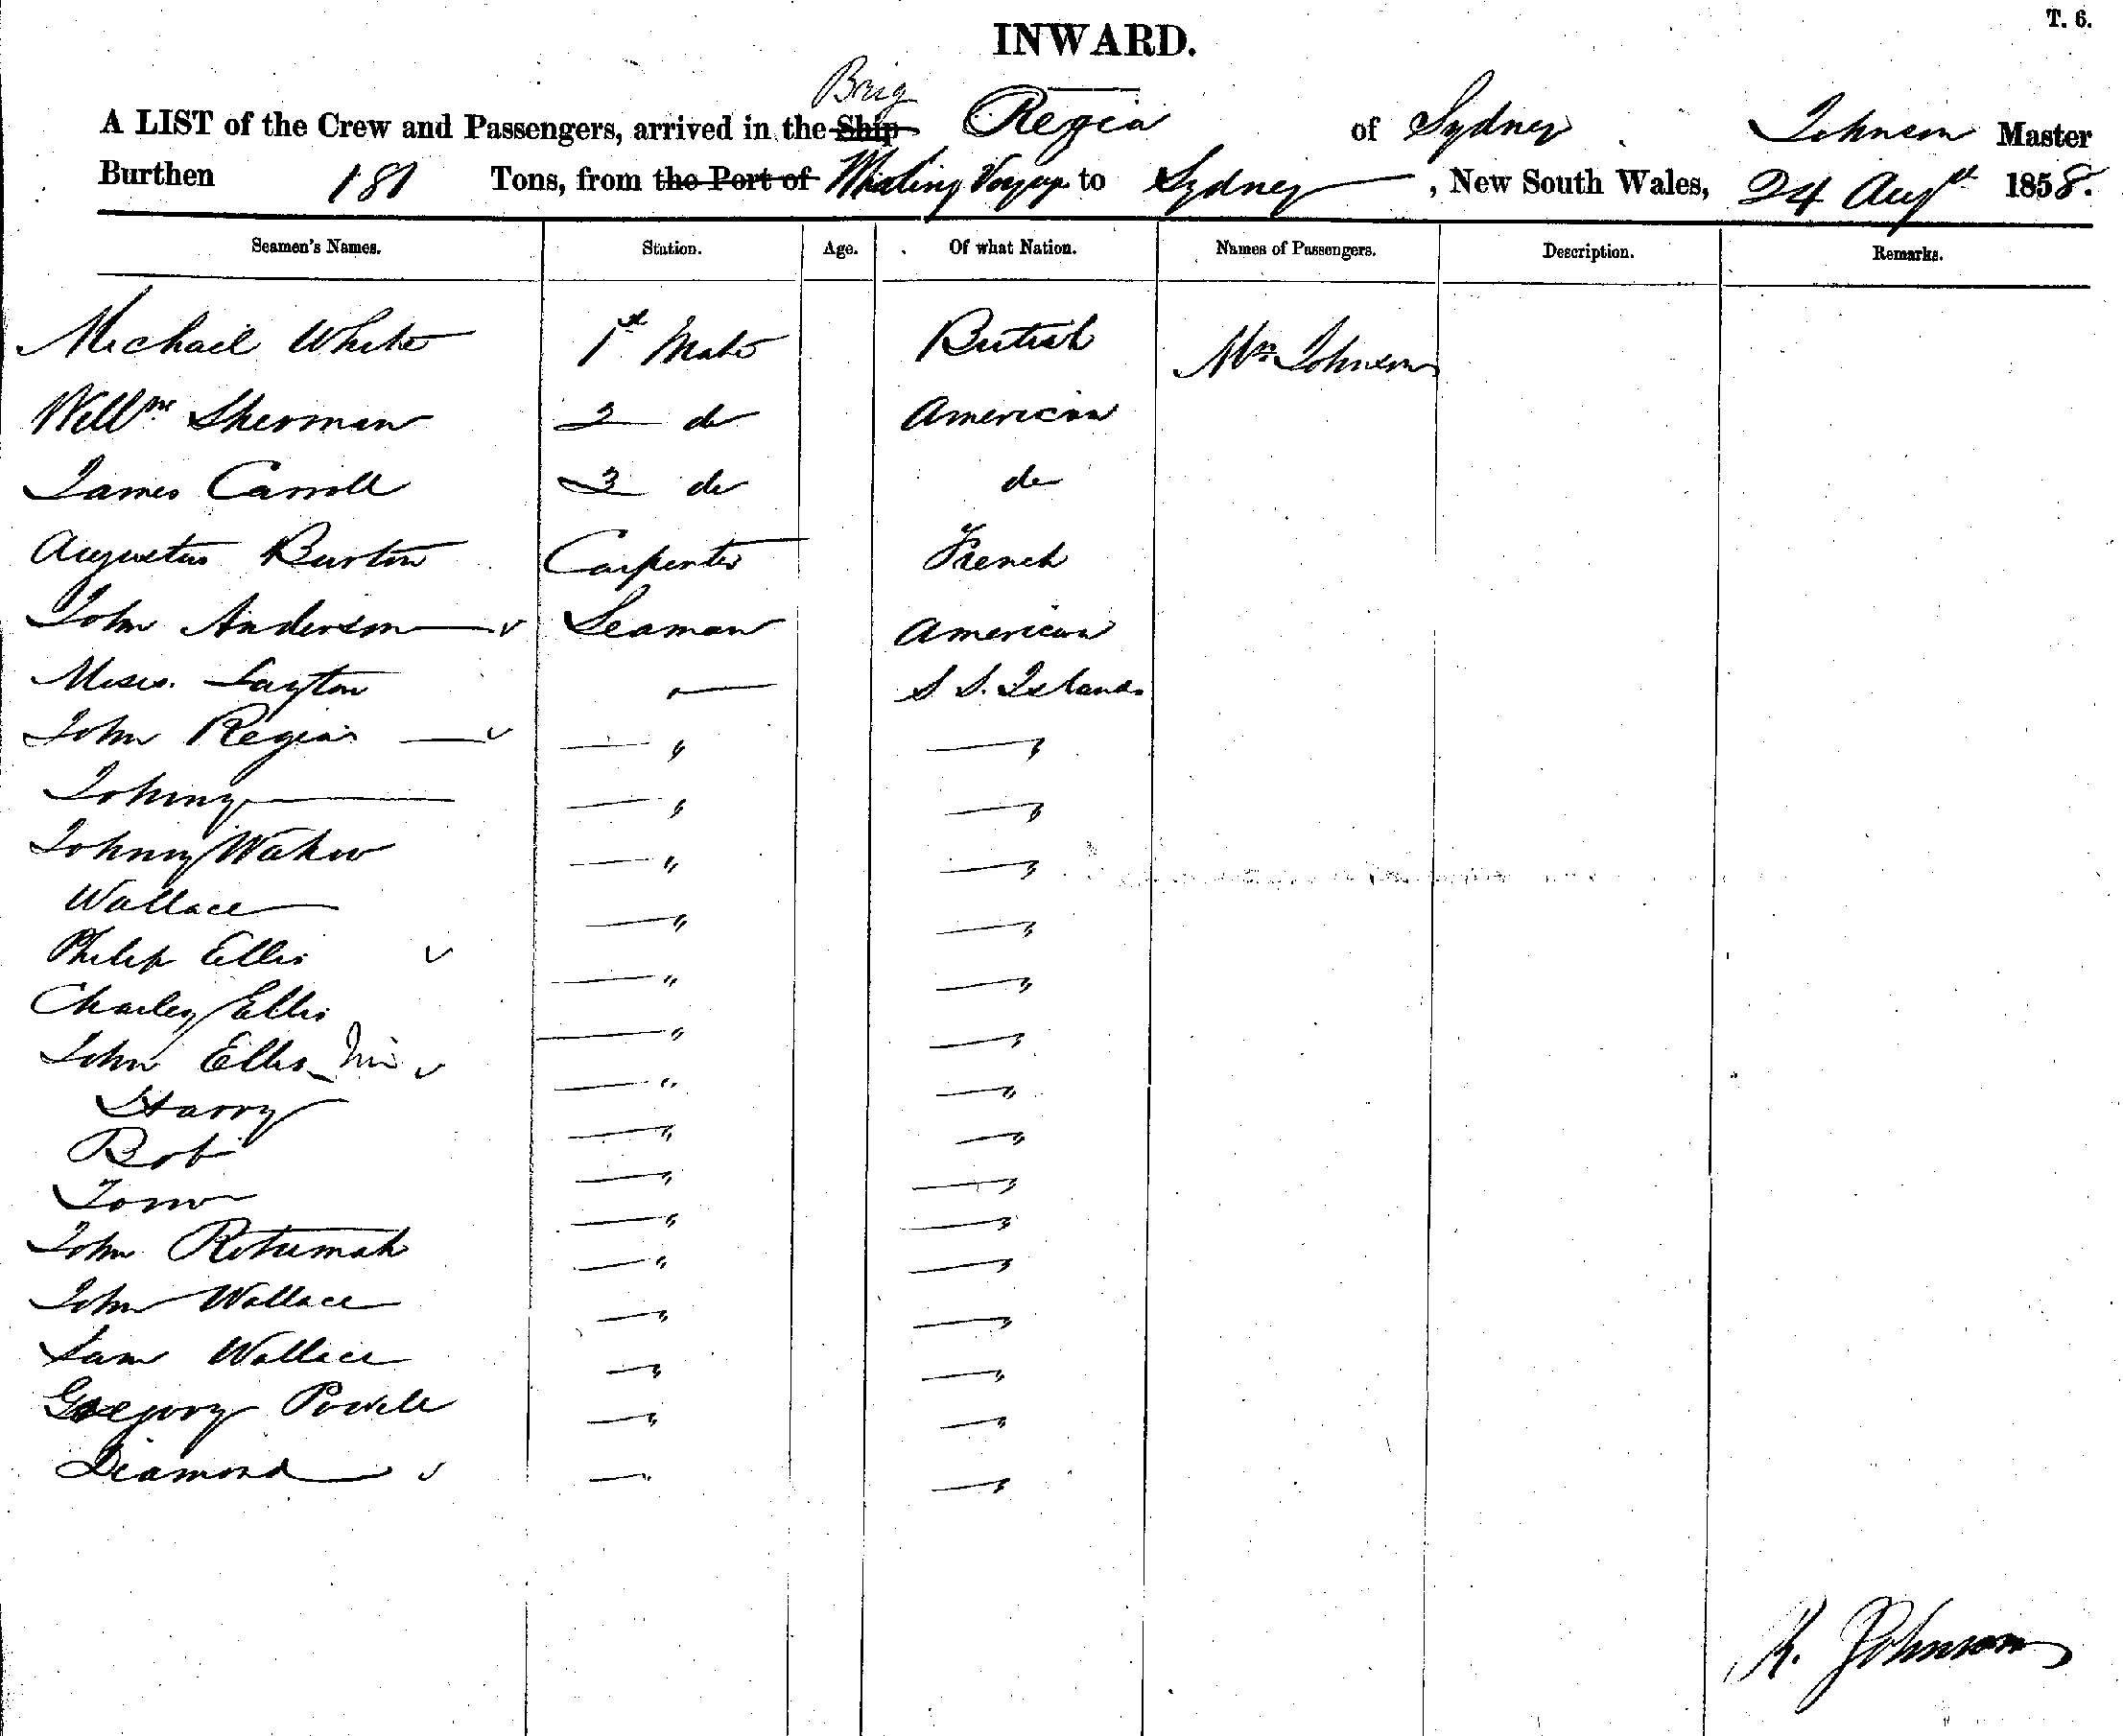 T. 6.
INWARD.
Brig
A LIST of the Crew and Passengers, arrived in the Ship Regia of Sydney Johnson Master
Burthen 181 Tons, from the Port of Whaling Voyage to Sydney, New South Wales, 24 Augst 1858.
Seamen's Names. Station. Age. Of what Nation. Names of Passengers. Description. Remarks.
Michael White 1st Mate British Mrs Johnson
Willm Sherman 2 do American
James Carroll 3 do do
Augustus Burton Carpenter French
John Anderson — v Seaman American
Moses Layton — S. S. Islands
John Regia — v — " — "
Johnny — — " — "
Johnny — " — "
Wallace — — " — "
Philip Ellis v — " — "
Charley Ellis — " — "
John Ellis v — " — "
Harry — " — "
Bob — " — "
Tom — " — "
John Rotumah — " — "
John Wallace — " — "
Sam Wallace — " — "
Gregory Powell — " — "
Diamond — v — " — "
K. Johnson